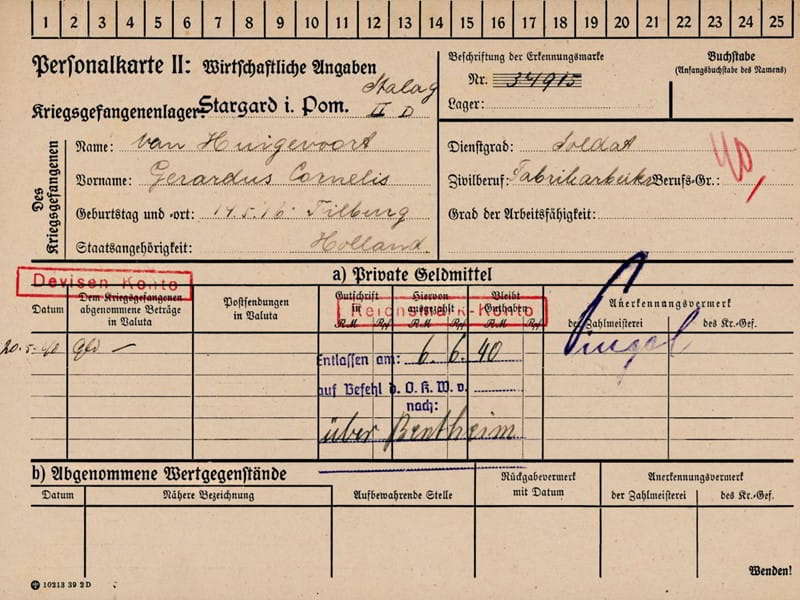 1 2 3 4 5 6 7 8 9 10 11 12 13 14 15 16 17 18 19 20 21 22 23 24 25
Personalkarte II: Wirtschaftliche Angaben
Kriegsgefangenenlager: Stargard i. Pom. Stalag II D
Beschriftung der Erkennungsmarke
Nr. 34915
Lager:
Buchstabe
(Anfangsbuchstabe des Namens)
Des Kriegsgefangenen
Name: van Huigevoort
Vorname: Gerardus Cornelis
Geburtstag und -ort: 14.5.16. Tilburg
Staatsangehörigkeit: Holland.
Dienstgrad: Soldat
Zivilberuf: Fabrikarbeiter Berufs-Gr.: 40,
Grad der Arbeitsfähigkeit:
a) Private Geldmittel
Devisen Konto
Reichsmark-Konto
Datum
Dem Kriegsgefangenen abgenommene Beträge in Valuta
Postsendungen in Valuta
Gutschrift in RM Rpf
Hiervon ausgezahlt RM Rpf
Bleibt Guthaben RM Rpf
Anerkennungsvermerk
der Zahlmeisterei des Kr.-Gef.
20.5.40
Entlassen am: 6.6.40
auf Befehl d. O.K.W. v.
nach:
über Bentheim
b) Abgenommene Wertgegenstände
Datum
Nähere Bezeichnung
Aufbewahrende Stelle
Rückgabevermerk mit Datum
Anerkennungsvermerk
der Zahlmeisterei des Kr.-Gef.
Wenden!
10213 39 2D